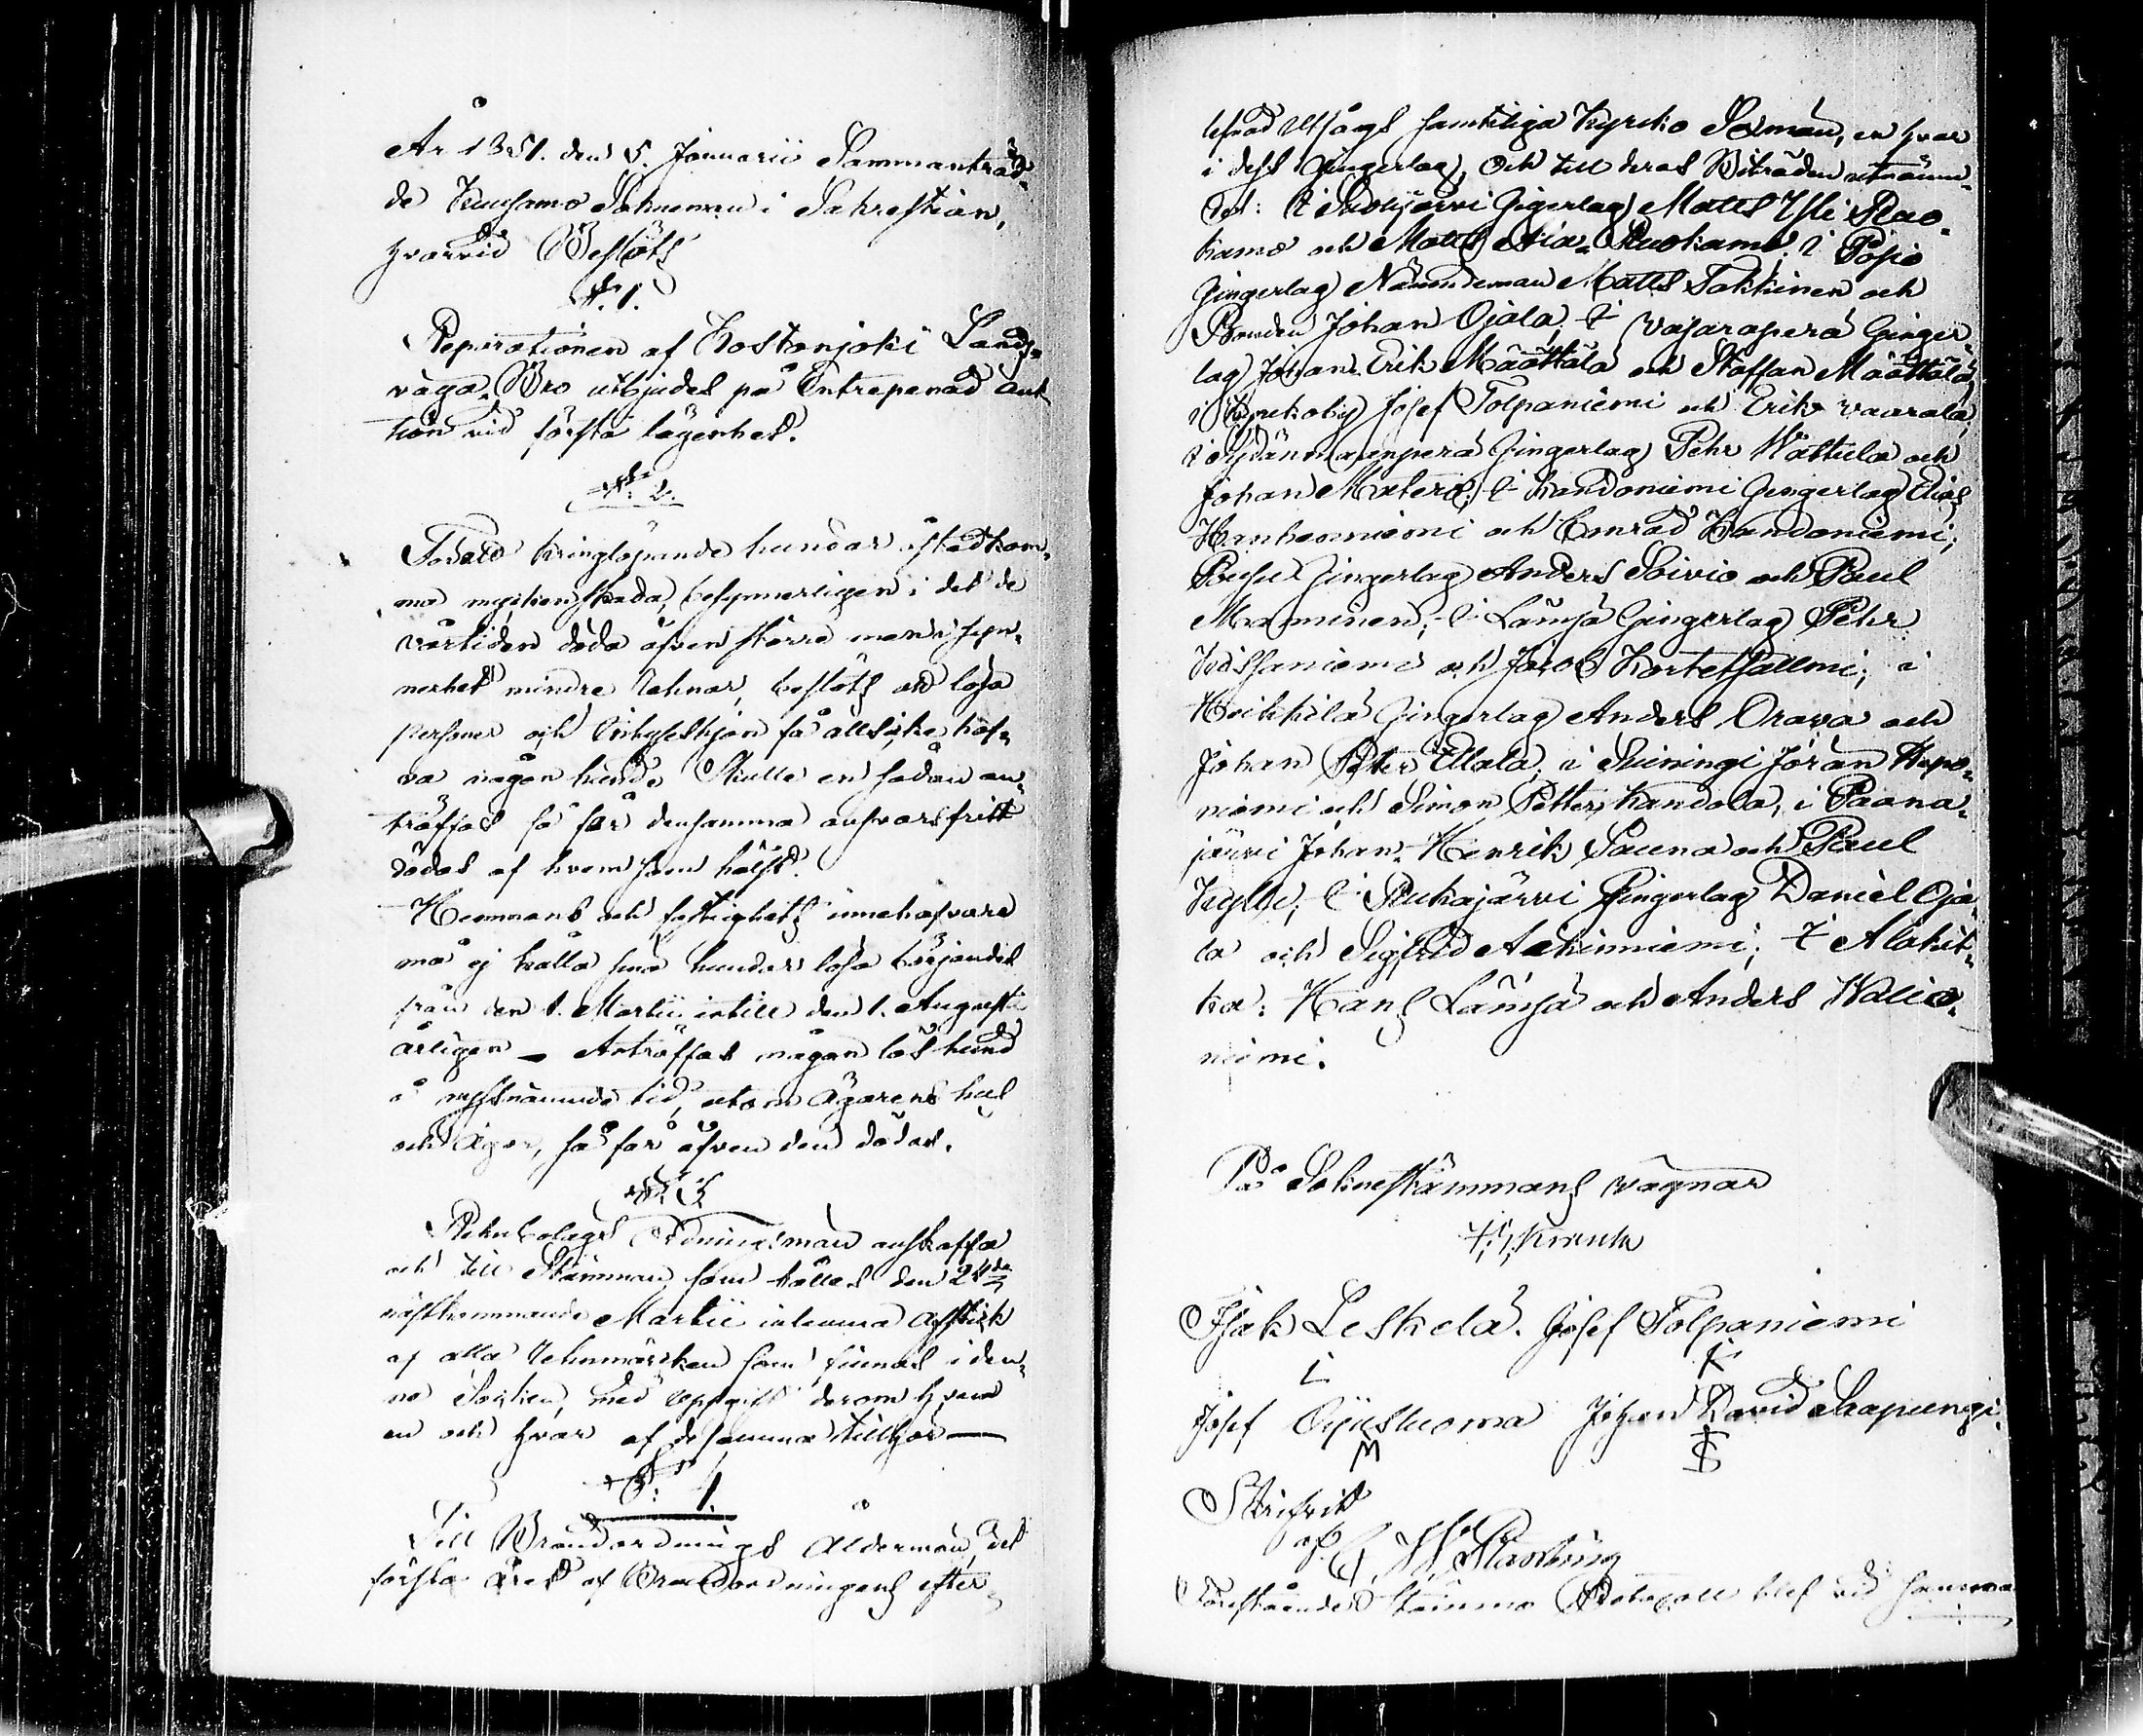 År 1851. den 5. Januarii Sammanträd-
de Kuusamo Sokneman i Sakrestian,
hvarvid Beslöts
§. 1.
Reparationen af Kostonjoki Lands-
väga-Bro utbjudes på Entreprenad Auk-
tion vid första lägenhet.
§. 2.
Såsom kringlöpande hundar åstadkom-
ma mycken skada, besynnerligen i det de
vårtiden döda äfven större men i syn-
nerhet mindre Rehnar, beslöts att lösa
personer och Inhyseshjon få alls icke haf-
va någon hund. Skulle en sådan an-
träffas så får densamma ansvarsfritt
dödas af hvem som hälst.
Hemmans och fastighets innehafvare
må ej hålla sina hundar lösa börjandes
från den 1. Martii intill den 1. Augusti
årligen – Anträffas någon lös hund
å nyssnämnde tid, utom Ägarens hus
och ägor, så får äfven den dödas.
§. 3
Rehnbolags Ordningsmän anskaffa
och till Stämman som hålles den 24de
nästkommande Martii inlemna Afskrift
af alla Rehnmärken som finnas i den-
na Socken, med uppgift derom hvem
en och hvar af desamma tillhör—
§. 4
Till Brandordnings Ålderman, det
första året af Brandordningens efter-
lefnad utsågs samtliga Kyrko Sexmän, en hvar
i dess Gingerlag, och till deras Biträden utnämn-
des: i Suolijärvi Gigerlag Matts Yli Ruo-
kamo och Matts Ala-Ruokamo. i Posio
Gingerlag Nämndeman Matts Takkinen och
Bonden Johan Ojala, i Vasaraperä Ginger-
lag Johan Erik Määttälä och Staffan Määttälä,
i Kyrkoby Josef Tolpaniemi och Erik Vaarala,
i Sydänmaanperä Gingerlag Pehr Mattila och
Johan Matero; i Kandoniemi Gingerlag Elias
Hankoniemi och Conrad Kandoniemi;
Poussu Gingerlag Anders Soivio och Paul
Manninen; i Lämsä Gingerlag Pehr
Kassaniemi och Jacob Kortetsalmi; i
Heikkilä Gingerlag Anders Orava och
Johan Petter Ellala; i Suiningi Jöran Hepo-
niemi och Simon Petter Kandola, i Paana-
järvi Johan Henrik Sauna och Paul
Kylli; i Rukajärvi Gingerlag Daniel Oja-
la och Sigfrid Aikinniemi; i Alakit-
ka: Hans Lämsä och Anders Walio-
niemi.
På Soknestämmans vägnar
Isak Leskelä. Josef Tolpaniemi
Josef Oijusluoma Johan David Saapungi.
M
S
Skrifvit
af
Förestående Stämmo Protocoll blef vid samma